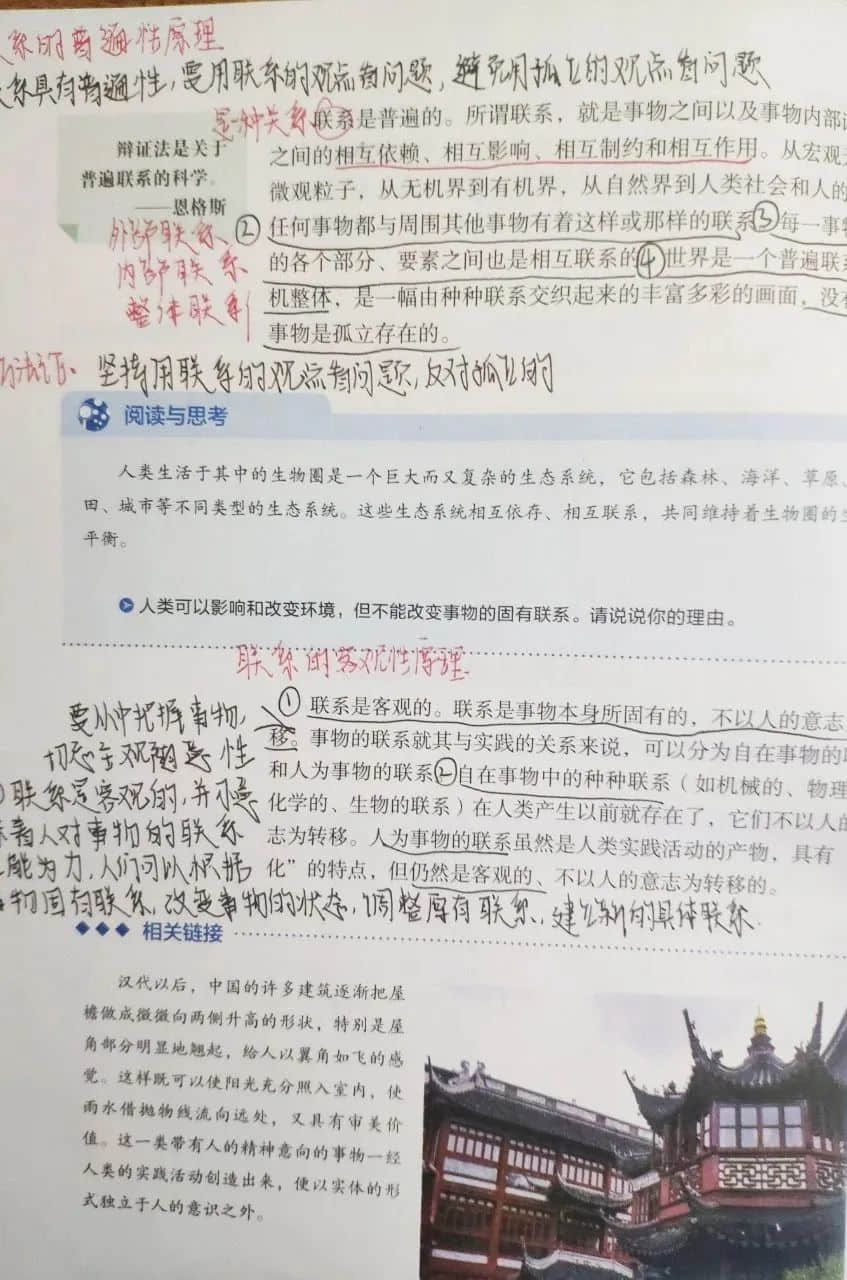 系的普遍性原理
系具有普遍性,要用联系的观点看问题,避免用孤立的观点看问题
是一种关系
①联系是普遍的。所谓联系，就是事物之间以及事物内部
之间的相互依赖、相互影响、相互制约和相互作用。从宏观
微观粒子，从无机界到有机界，从自然界到人类社会和人的
②任何事物都与周围其他事物有着这样或那样的联系③每一事物
的各个部分、要素之间也是相互联系的④世界是一个普遍联系
机整体，是一幅由种种联系交织起来的丰富多彩的画面，没有
事物是孤立存在的。
辩证法是关于
普遍联系的科学。
——恩格斯
外部联系、
内部联系
整体联系
方法论: 坚持用联系的观点看问题,反对孤立的
阅读与思考
人类生活于其中的生物圈是一个巨大而又复杂的生态系统，它包括森林、海洋、草原、
田、城市等不同类型的生态系统。这些生态系统相互依存、相互联系，共同维持着生物圈的
平衡。
人类可以影响和改变环境，但不能改变事物的固有联系。请说说你的理由。
联系的客观性原理
①联系是客观的。联系是事物本身所固有的，不以人的意志
移。事物的联系就其与实践的关系来说，可以分为自在事物的
和人为事物的联系②自在事物中的种种联系（如机械的、物理
化学的、生物的联系）在人类产生以前就存在了，它们不以人的
志为转移。人为事物的联系虽然是人类实践活动的产物，具有
化”的特点，但仍然是客观的、不以人的意志为转移的。
要从中把握事物,
切忌主观随意性
联系是客观的,并不意
味着人对事物的联系
能为力,人们可以根据
物固有联系,改变事物的状态,调整原有联系,建立新的具体联系.
相关链接
汉代以后，中国的许多建筑逐渐把屋
檐做成微微向两侧升高的形状，特别是屋
角部分明显地翘起，给人以翼角如飞的感
觉。这样既可以使阳光充分照入室内，使
雨水借抛物线流向远处，又具有审美价
值。这一类带有人的精神意向的事物一经
人类的实践活动创造出来，便以实体的形
式独立于人的意识之外。